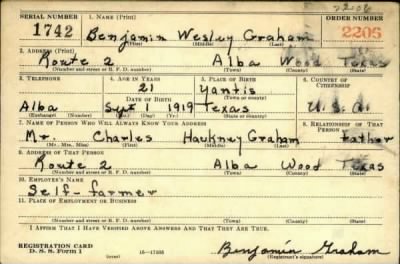 2206
SERIAL NUMBER 1. NAME (Print) ORDER NUMBER
1742 Benjamin Wesley Graham 2206
(First) (Middle) (Last)
2. ADDRESS (Print)
Route 2 Alba Wood Texas
(Number and street or R. F. D. number) (Town) (County) (State)
3. TELEPHONE 4. AGE IN YEARS 5. PLACE OF BIRTH 6. COUNTRY OF CITIZENSHIP
21 Yantis
DATE OF BIRTH (Town or county)
Alba Sept 1 1919 Texas U. S. A.
(Exchange) (Number) (Mo.) (Day) (Yr.) (State or country)
7. NAME OF PERSON WHO WILL ALWAYS KNOW YOUR ADDRESS 8. RELATIONSHIP OF THAT PERSON
Mr. Charles Hackney Graham father
(Mr., Mrs., Miss) (First) (Middle) (Last)
9. ADDRESS OF THAT PERSON
Route 2 Alba Wood Texas
(Number and street or R. F. D. number) (Town) (County) (State)
10. EMPLOYER'S NAME
Self-farmer
11. PLACE OF EMPLOYMENT OR BUSINESS
(Number and street or R. F. D. number) (Town) (County) (State)
I AFFIRM THAT I HAVE VERIFIED ABOVE ANSWERS AND THAT THEY ARE TRUE.
REGISTRATION CARD
D. S. S. Form 1 (over) Benjamin Graham
(Registrant's signature)